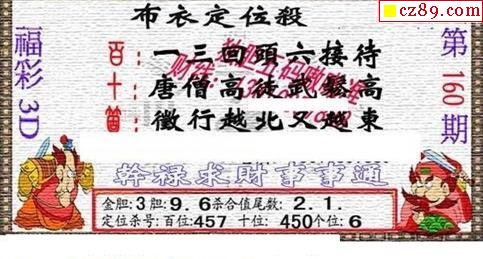 cz89.com
布衣定位殺
福彩3D
第160期
百：一三回頭六接待
十：唐僧高徒武藝高
個：徽行越北又越東
幹禄求財事事通
金胆：3胆：9.6杀合值尾数：2.1.
定位杀号：百位：457 十位：450个位：6